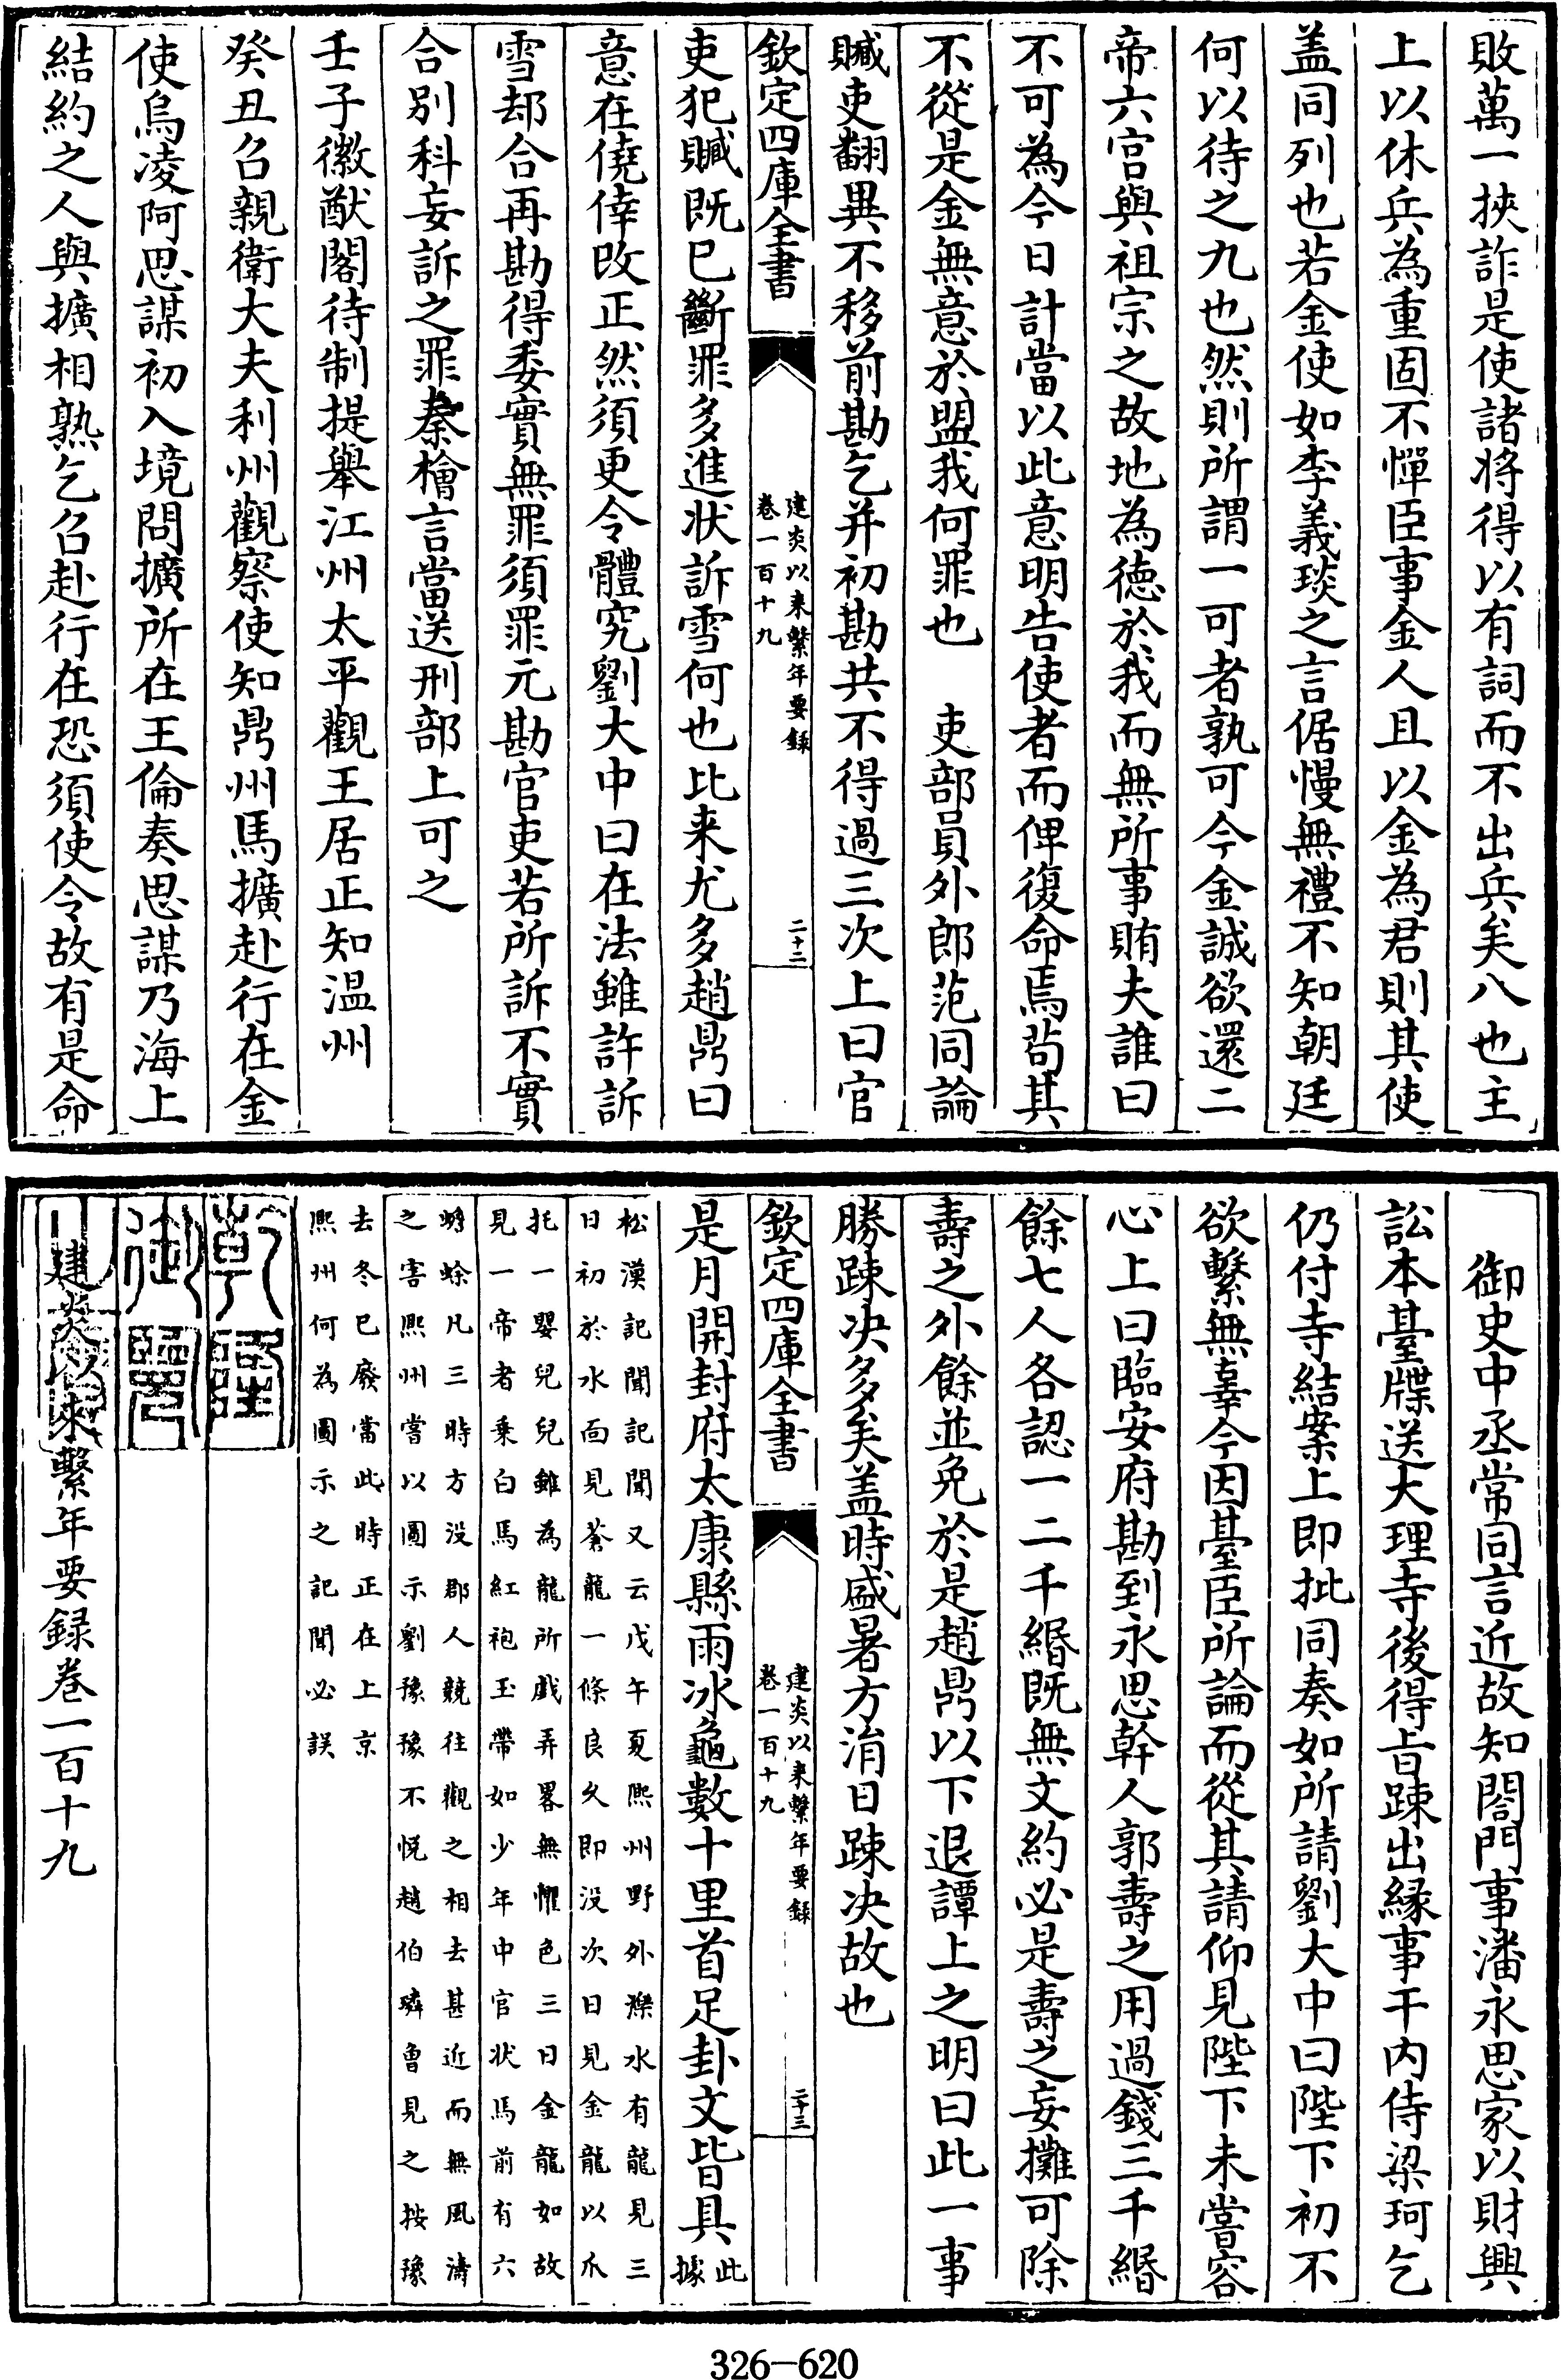 敗萬一挾詐是使諸將得以有詞而不出兵矣八也主
上以休兵為重固不憚臣事金人且以金為君則其使
盖同列也若金使如李義琰之言倨慢無禮不知朝廷
何以待之九也然則所謂一可者孰可今金誠欲還二
帝六宫與祖宗之故地為德於我而無所事賄夫誰曰
不可為今日計當以此意明告使者而俾復命焉茍其
不從是金無意於盟我何罪也　吏部員外郎范同論
贓吏翻異不移前勘乞并初勘共不得過三次上曰官
欽定四庫全書
建炎以来繫年要録
卷一百十九
二十二
吏犯贓既已斷罪多進狀訴雪何也比来尤多趙鼎曰
意在僥倖改正然須更令體究劉大中曰在法雖許訴
雪却合再勘得委實無罪須罪元勘官吏若所訴不實
合别科妄訴之罪秦檜言當送刑部上可之
壬子徽猷閣待制提舉江州太平觀王居正知温州
癸丑召親衛大夫利州觀察使知鼎州馬擴赴行在金
使烏凌阿思謀初入境問擴所在王倫奏思謀乃海上
結約之人與擴相熟乞召赴行在恐須使令故有是命
御史中丞常同言近故知閤門事潘永思家以財興
訟本臺牒送大理寺後得旨踈出縁事干内侍梁珂乞
仍付寺結案上即批同奏如所請劉大中曰陛下初不
欲繫無辜今因臺臣所論而從其請仰見陛下未嘗容
心上曰臨安府勘到永思幹人郭壽之用過錢三千緡
餘七人各認一二千緡既無文約必是壽之妄攤可除
壽之外餘並免於是趙鼎以下退譚上之明曰此一事
勝踈决多矣盖時盛暑方涓日踈决故也
欽定四庫全書
建炎以来繫年要録
卷一百十九
二十三
是月開封府太康縣雨冰龜數十里首足卦文皆具此
據
松漠記聞記聞又云戊午夏熈州野外濼水有龍見三
日初於水面見蒼龍一條良久即没次日見金龍以爪
托一嬰兒兒雖為龍所戲弄畧無懼色三日金龍如故
見一帝者乗白馬紅袍玉帶如少年中官状馬前有六
蟾蜍凡三時方没郡人競往觀之相去甚近而無風濤
之害熈州嘗以圖示劉豫豫不悦趙伯璘曾見之按豫
去冬已廢當此時正在上京
熈州何為圖示之記聞必誤
乾隆
御覽
之寶
建炎以来繫年要録卷一百十九
326—620